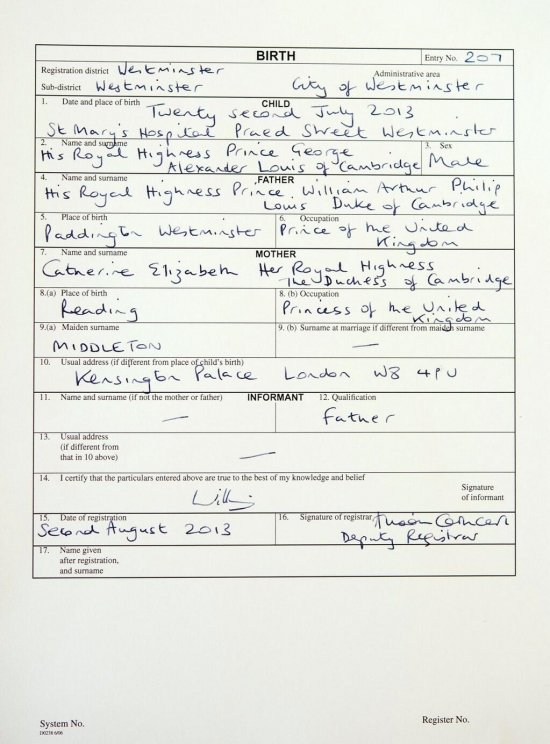 BIRTH
Entry No. 207
Registration district Westminster
Administrative area
Sub-district Westminster
City of Westminster
1. Date and place of birth
CHILD
Twenty second July 2013
St Mary's Hospital Praed Street Westminster
2. Name and surname
3. Sex
His Royal Highness Prince George
Alexander Louis of Cambridge
Male
4. Name and surname
FATHER
His Royal Highness Prince William Arthur Philip
Louis Duke of Cambridge
5. Place of birth
6. Occupation
Paddington Westminster
Prince of the United
Kingdom
7. Name and surname
MOTHER
Catherine Elizabeth Her Royal Highness
The Duchess of Cambridge
8.(a) Place of birth
8. (b) Occupation
Reading
Princess of the United
Kingdom
9.(a) Maiden surname
9. (b) Surname at marriage if different from maiden surname
MIDDLETON
—
10. Usual address (if different from place of child's birth)
Kensington Palace London W8 4PU
11. Name and surname (if not the mother or father)
INFORMANT
12. Qualification
—
Father
13. Usual address
(if different from
that in 10 above)
—
14. I certify that the particulars entered above are true to the best of my knowledge and belief
Signature
of informant
15. Date of registration
16. Signature of registrar
Second August 2013
Deputy Registrar
17. Name given
after registration,
and surname
System No.
Register No.